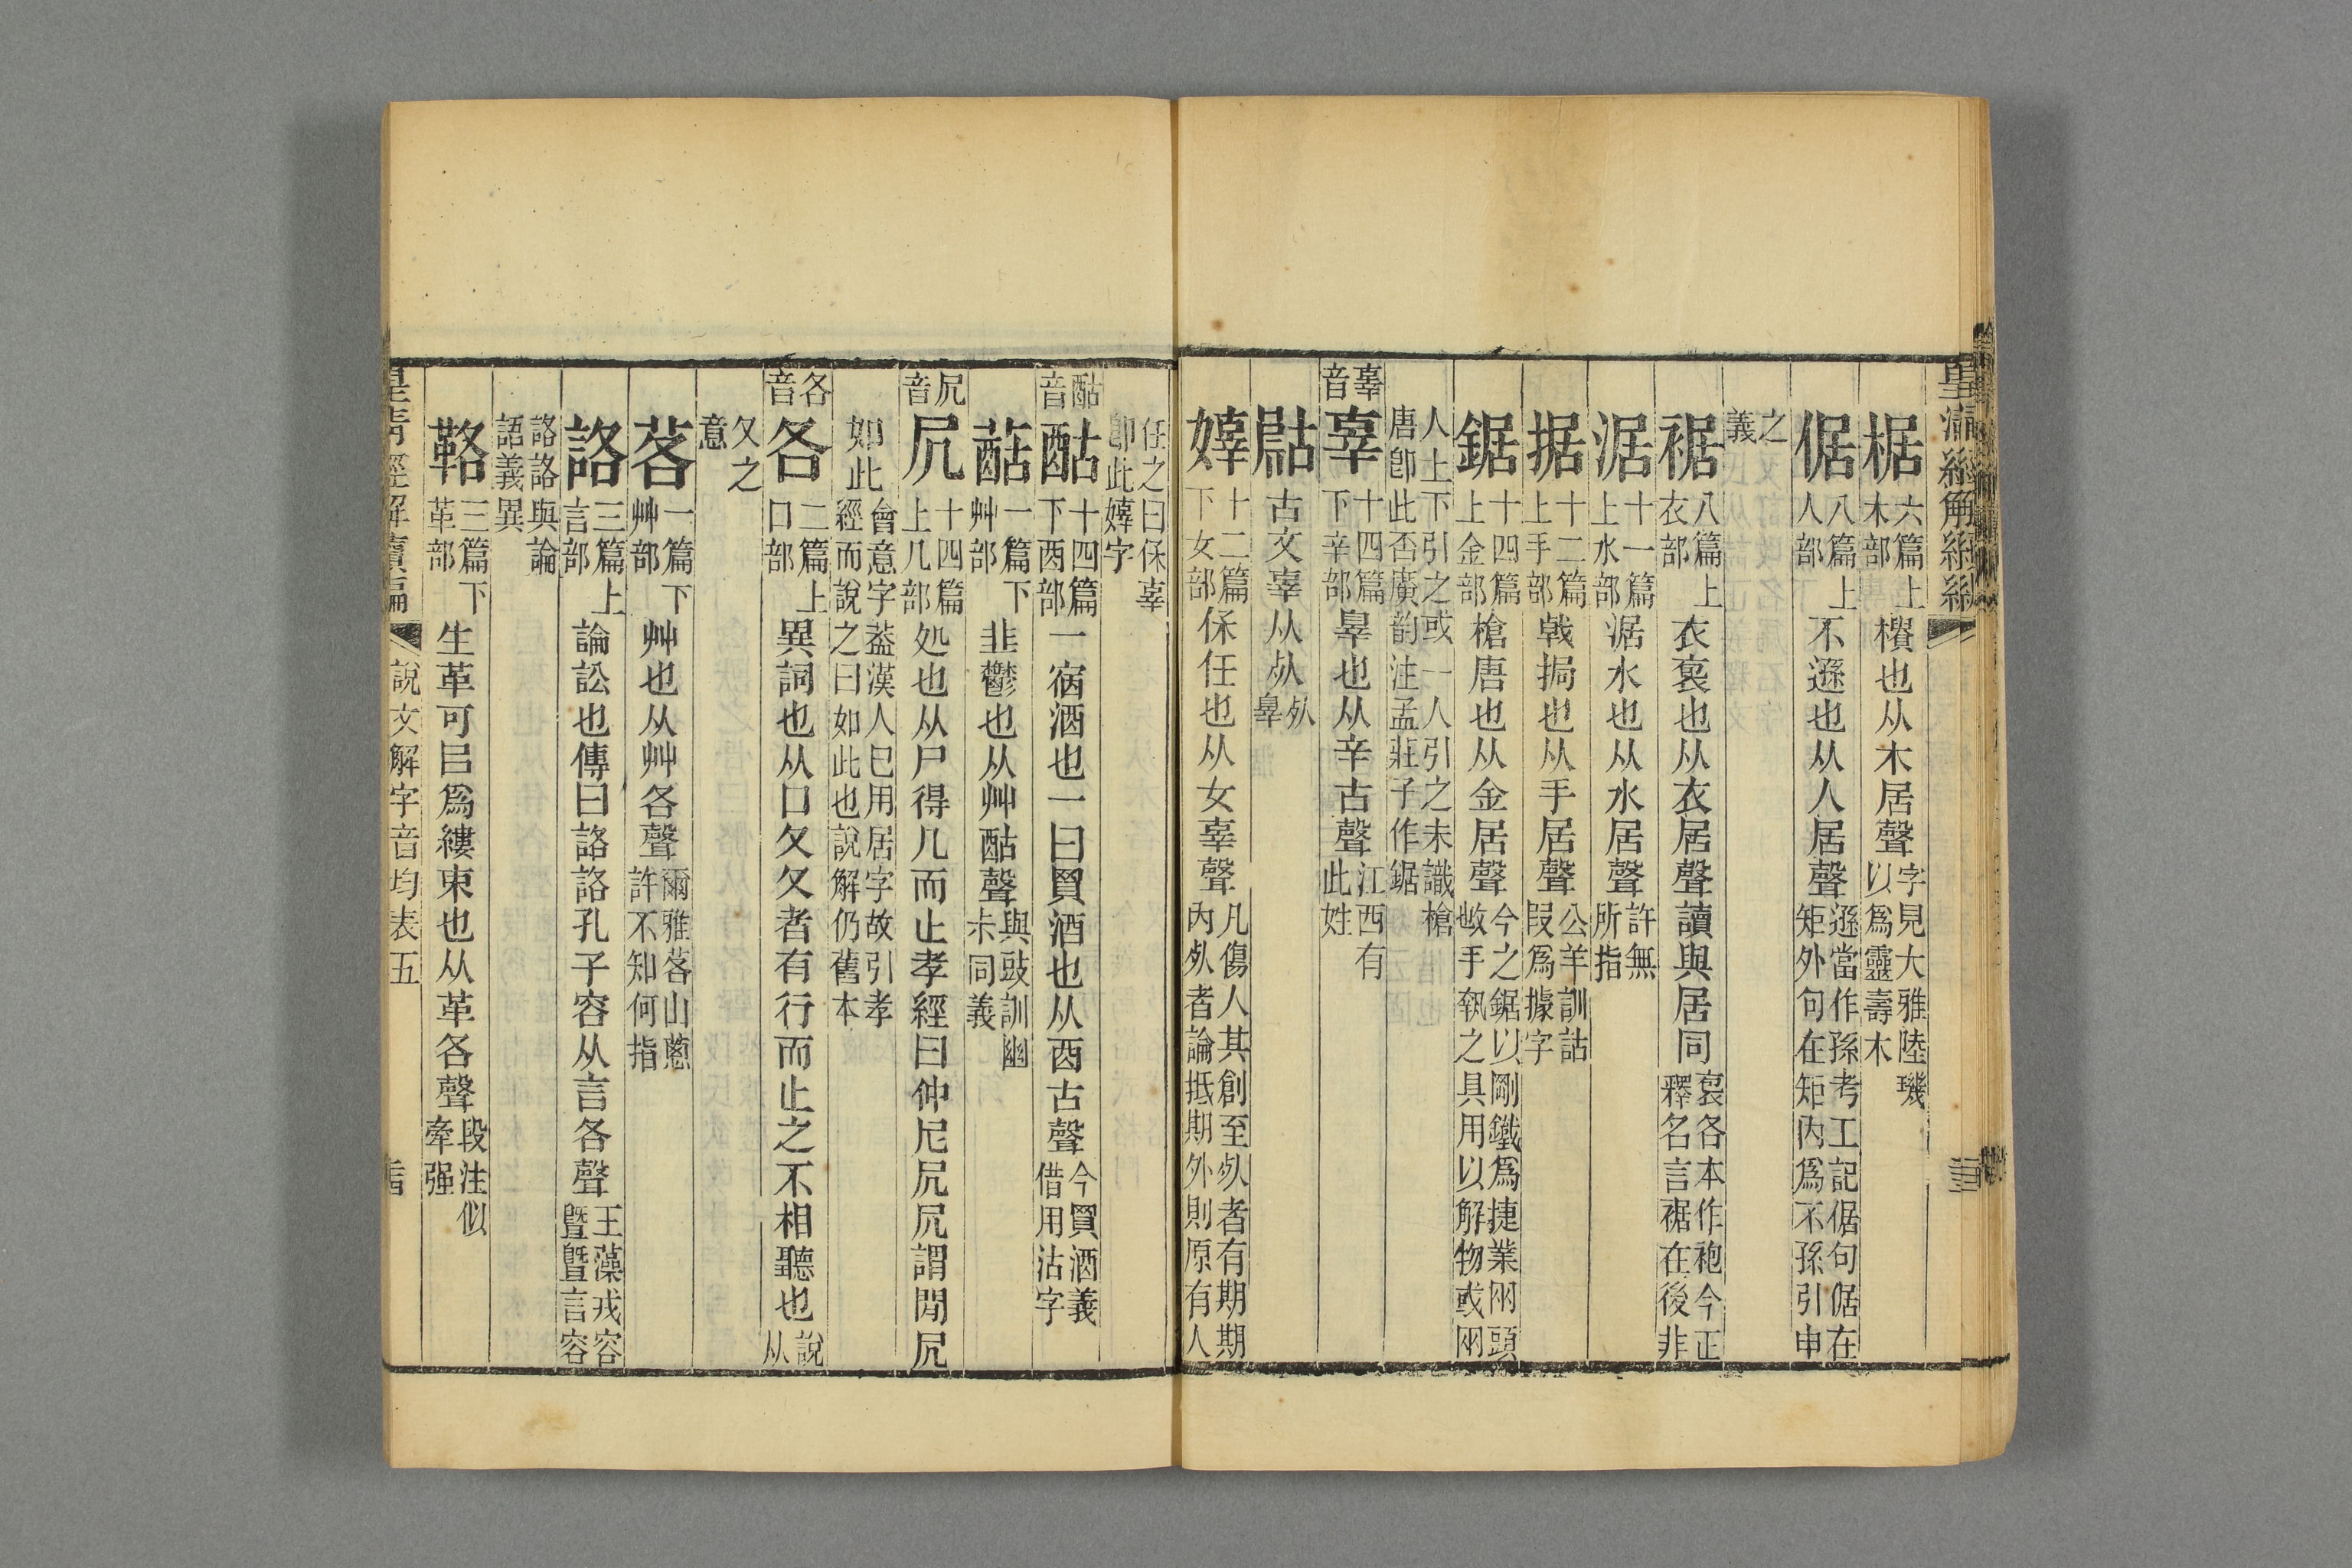 皇淸經解續編
椐六篇上木部樻也从木居聲字見大雅陸璣以爲靈壽木
倨八篇上人部不遜也从人居聲遜當作孫考工記倨句倨在矩外句在矩內爲不孫引申
之義
裾八篇上衣部衣裒也从衣居聲讀與居同裒各本作袍今正釋名言裾在後非
涺十一篇上水部涺水也从水居聲許無所指
据十二篇上手部戟挶也从手居聲公羊訓詁叚爲據字
鋸十四篇上金部槍唐也从金居聲今之鋸以剛鐵爲捷業㒳頭㪅手執之具用以解物或㒳
人上下引之或一人引之未識槍唐卽此否廣韵注孟莊子作鋸
辜音
辜十四篇下辛部辠也从辛古聲江西有此姓
𣨙古文辜从𣦸𣦸辠
嫴十二篇下女部保任也从女辜聲凡傷人其創至𣦸者有期期內𣦸者論抵期外則原有人
任之曰保辜卽此嫴字
酤音
酤十四篇下酉部一宿酒也一曰買酒也从酉古聲今買酒義借用沽字
䔯一篇下艸部韭鬱也从艸酤聲與豉訓幽尗同義
凥音
凥十四篇上几部処也从尸得几而止孝經曰仲尼凥凥謂閒凥
如此會意字葢漢人已用居字故引孝經而說之曰如此也說解仍舊本
各音
各二篇上口部異詞也从口夂夂者有行而止之不相聽也說从
夂之意
茖一篇下艸部艸也从艸各聲爾雅茖山蔥許不知何指
詻三篇上言部論訟也傳曰詻詻孔子容从言各聲王藻戎容曁曁言容
詻詻與論語義異
鞈三篇下革部生革可㠯爲縷束也从革各聲段注似牽强
皇淸經解續編 說文解字音均表五